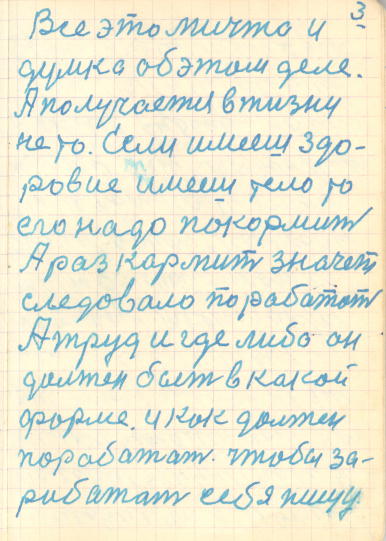 3
Все это мичта и
думка об этом деле.
А получается в жизни
не то. Если имееш здо-
ровие имееш тело то
его надо покормит
А раз кармит значет
следовало порабатат
А труд и где либо он
должен быт в какой
форме. и как должен
порабатат. чтобы за-
рабатат себя пищу